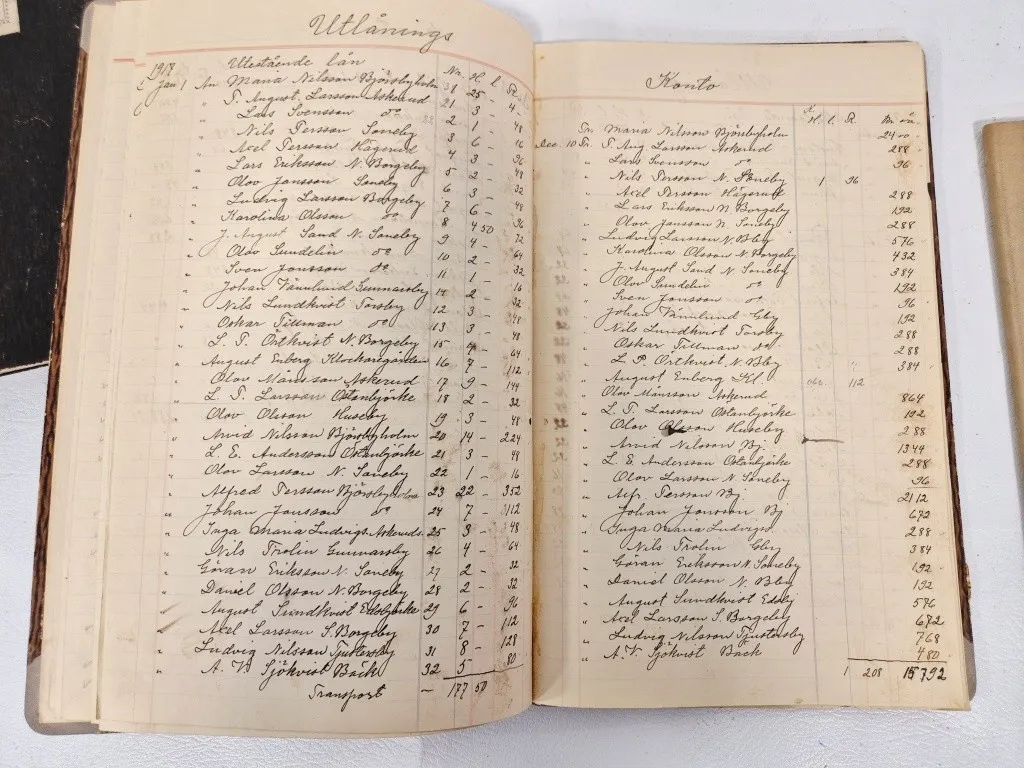 Utlånings
1917 Utestående lån No. H. l. R.
Jan 1 An Maria Nilsson Björsbyholm 31 25 -
" P. August Larsson Askerud 21 3 - 4 -
" Lars Svensson do 2 1 - 48
" Nils Persson Soneby 3 6 - 16
" Axel Persson Hägerud 4 3 - 96
" Lars Eriksson N. Borgeby 5 2 - 48
" Olov Jansson Soneby 6 3 - 32
" Ludvig Larsson Borgeby 7 6 - 48
" Karolina Olsson do 8 4 50 96
" J. August Sand N. Soneby 9 4 - 72
" Olov Sundelin do 10 2 - 64
" Sven Jonsson do 11 1 - 32
" Johan Vännlund Gunnarsby 14 2 - 16
" Nils Lundkvist Torsby 12 3 - 32
" Oskar Tillman do 13 3 - 48
" L. P. Örtkvist N. Borgeby 15 4 - 48
" August Enberg Klockaregården 16 7 - 64
" Olov Månsson Askerud 17 9 - 112
" L. P. Larsson Östanbjörke 18 2 - 144
" Olov Olsson Huseby 19 3 - 32
" Arvid Nilsson Björsbyholm 20 14 - 48
" L. E. Andersson Östanbjörke 21 3 - 224
" Olov Larsson N. Soneby 22 1 - 48
" Alfred Persson Björsbyholm 23 22 - 16
" Johan Jonsson do 24 7 - 352
" Inga Maria Ludvigs Askerud 25 3 - 112
" Nils Trolin Gunnarsby 26 4 - 48
" Göran Eriksson N. Soneby 27 2 - 64
" Daniel Olsson N. Borgeby 28 2 - 32
" August Sundkvist Edsbjörke 29 6 - 32
" Axel Larsson S. Borgeby 30 7 - 96
" Ludvig Nilsson Tjustersby 31 8 - 112
" A. V. Sjökvist Bäck 32 5 - 128
80
Transport - 177 50
Konto
H. l. R. Kr. ör.
Pr. Maria Nilson Björsbyholm 24 00
Dec. 10 Pr. P. Aug. Larsson Askerud 2 88
" Lars Svensson do 96
" Nils Persson N. Soneby 1 96
" Axel Persson Hägerud 2 88
" Lars Eriksson N. Borgeby 1 92
" Olov Jansson N. Soneby 2 88
" Ludvig Larsson N. Bby 5 76
" Karolina Olsson N. Borgeby 4 32
" J. August Sand N. Soneby 3 84
" Olov Sundelin do 1 92
" Sven Jonsson do 96
" Johan Vännlund Gby 1 92
" Nils Lundkvist Torsby 2 88
" Oskar Tillman do 2 88
" L. P. Örtkvist N. Bby 3 84
" August Enberg Kl. 112
" Olov Månsson Askerud 8 64
" L. P. Larsson Östanbjörke 1 92
" Olov Olsson Huseby 2 88
" Arvid Nilsson Bj. 13 44
" L. E. Andersson Östanbjörke 2 88
" Olov Larsson N Soneby 96
" Alfr. Persson Bj 21 12
" Johan Jonsson Bj 6 72
" Inga Maria Ludvigs 2 88
" Nils Trolin Gby 3 84
" Göran Eriksson N. Soneby 1 92
" Daniel Olsson N. Bby 1 92
" August Sundkvist Edsbj 5 76
" Axel Larsson S. Borgeby 6 72
" Ludvig Nilsson Tjustersby 7 68
" A. V. Sjökvist Bäck 4 80
1 208 157 92